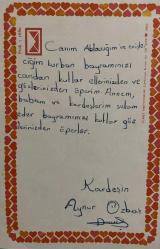 Canım Ablacığım ve enişte
ciğim kurban bayramınızı
candan kutlar ellerinizden ve
gözlerinizden öperim Annem,
babam ve kardeşlerim selam
eder bayramınızı kutlar göz
lerinizden öperler.
Kardeşin
Aynur Özbas